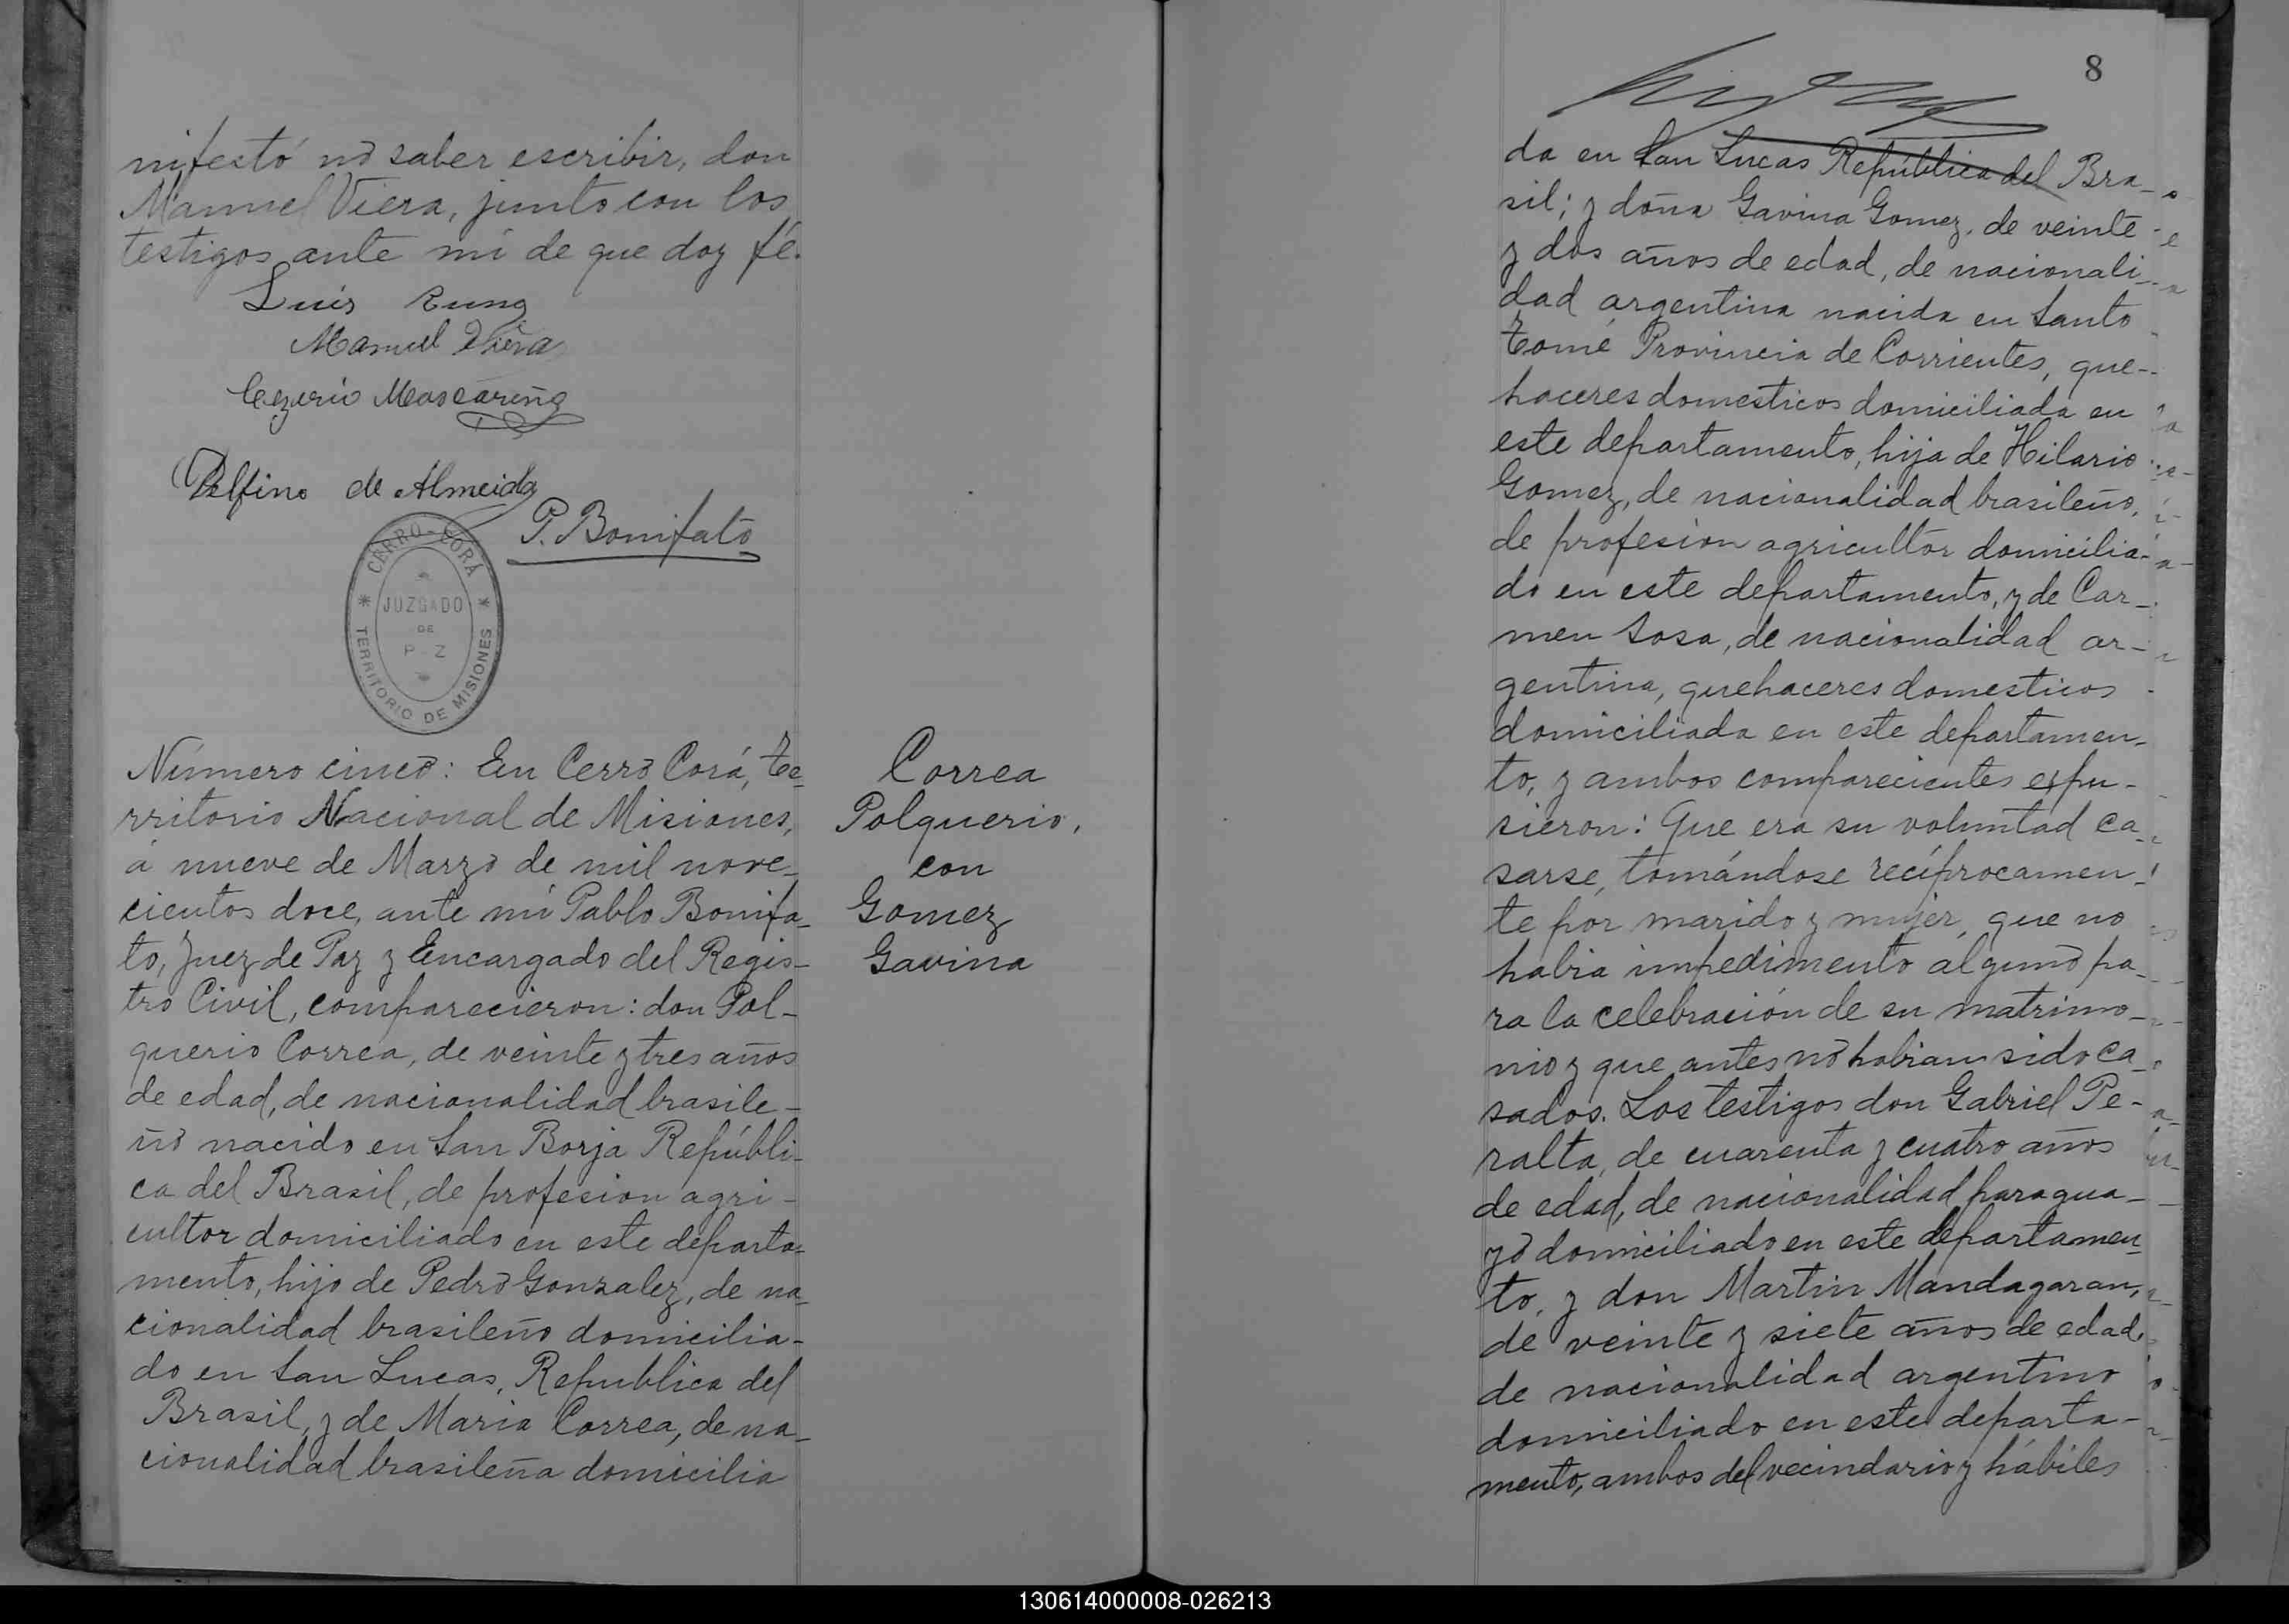 nifestó no saber escribir, don
Manuel Viera, junto con los
testigos ante mí de que doy fé.
Luis
Manuel Viera
Cezerio Mascareña
Delfino de Almeida
P. Bonifato
CERRO-CORÁ
JUZGADO
DE
P Z
TERRITORIO DE MISIONES
Número cinco: En Cerro Corá, te-
rritorio Nacional de Misiones,
á nueve de Marzo de mil nove-
cientos doce, ante mí Pablo Bonifa-
to, Juez de Paz y Encargado del Regis-
tro Civil, comparecieron: don Pol-
querio Correa, de veinte y tres años
de edad, de nacionalidad brasile-
ño nacido en San Borja Repúbli-
ca del Brasil, de profesion agri-
cultor domiciliado en este departa-
mento, hijo de Pedro Gonzalez, de na-
cionalidad brasileño domicilia-
do en San Lucas, Republica del
Brasil, y de Maria Correa, de na-
cionalidad brasileña domicilia
Correa
Polquerio,
con
Gomez
Gavina
8
da en San Lucas República del Bra-
sil; y doña Gavina Gomez, de veinte
y dos años de edad, de nacionali-
dad argentina nacida en Santo
Tomé Provincia de Corrientes, que-
haceres domesticos domiciliada en
este departamento, hija de Hilario
Gomez, de nacionalidad brasileño,
de profesion agricultor domicilia-
do en este departamento, y de Car-
men Sosa, de nacionalidad ar-
gentina, quehaceres domesticos
domiciliada en este departamen-
to, y ambos comparecientes expu-
sieron: Que era su voluntad ca-
sarse, tomándose recíprocamen-
te por marido y mujer, que no
habia impedimento alguno pa-
ra la celebración de su matrimo-
nio y que antes no habian sido ca-
sados. Los testigos don Gabriel Pe-
ralta, de cuarenta y cuatro años
de edad, de nacionalidad paragua-
yo domiciliado en este departamen-
to, y don Martin Mandagaran,
de veinte y siete años de edad,
de nacionalidad argentino
domiciliado en este departa-
mento, ambos del vecindario y hábiles
130614000008-026213